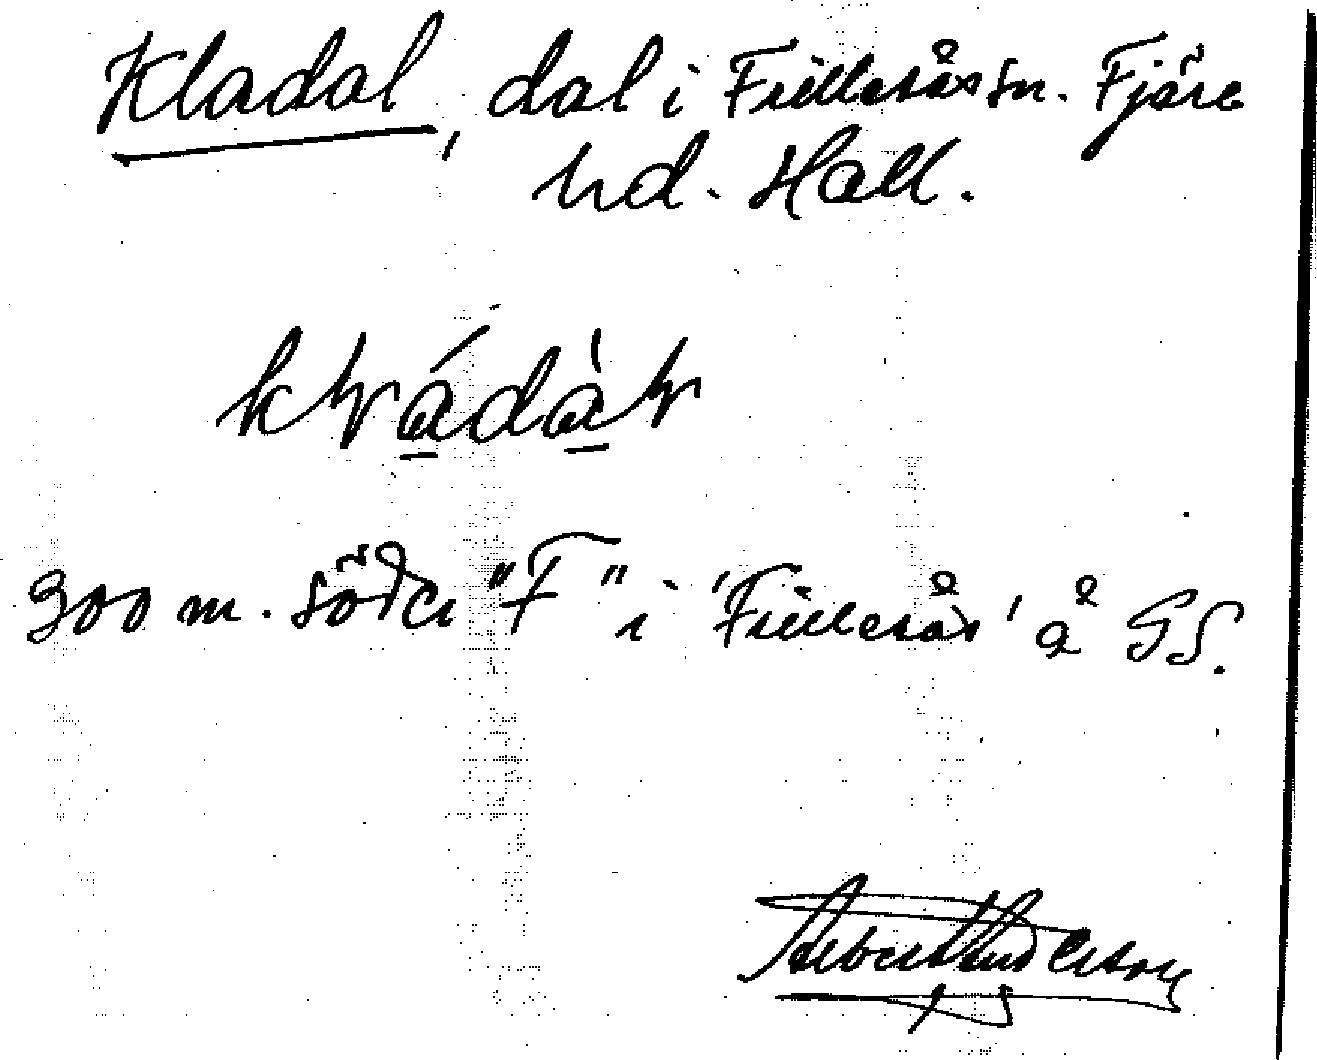 Kladal, dal i Fjällsåssn. Fjäre
hd. Hall.
300 m. söder "F" i 'Fjällsås' å GS.
Albert Anderson